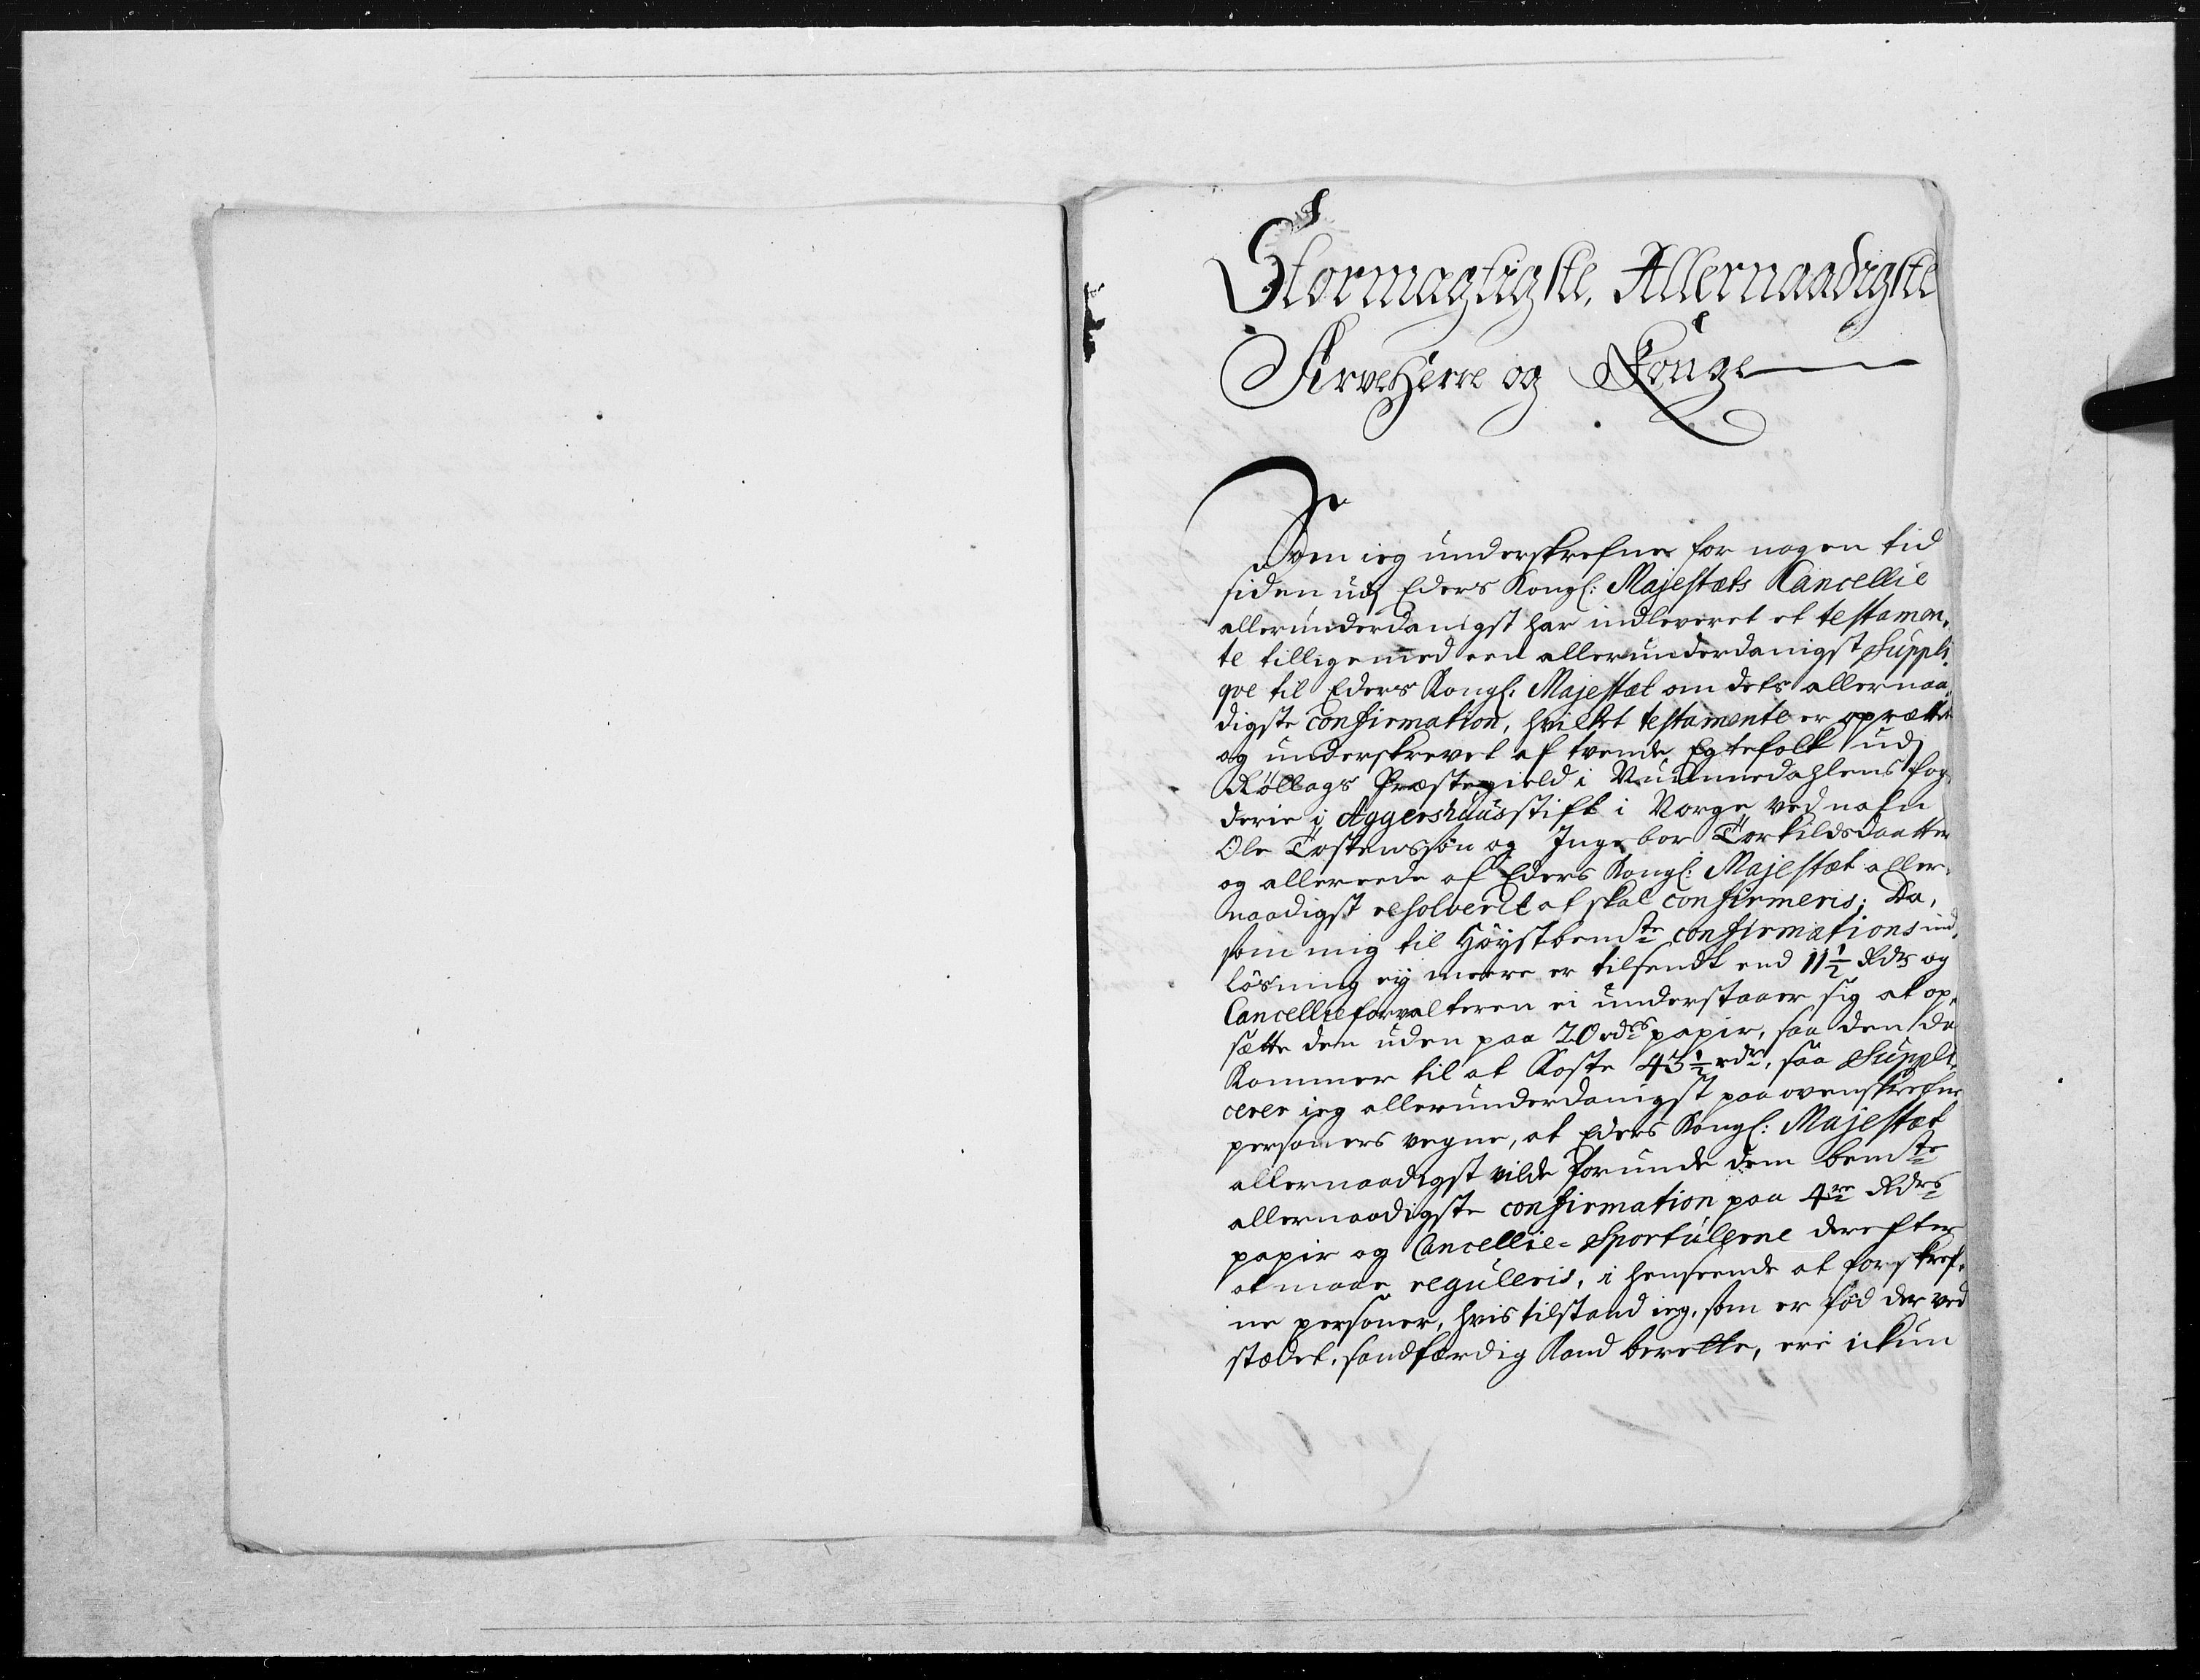 Stormagtigste, Allernaadigste
ArveHerre og Konge
Som ieg underskrefne for nogen tid
siden udj Eders Kongl: Majestæts Cancellie
allerunderdanigst har indleveret et testamen,
te tilligemed een allerunderdanigst Suppli,
qve til Eders Kongl: Majestæt om dets allernaa,
digste confirmation, hvilket testamente er oprættet
og underskrevet af tvende Egtefolk udj
Rollags Præstegield i Nummedahlens fog,
derie i Aggershuus stift i Norge ved nafn
Ole Tostenssøn og Ingebor Torkildsdaatter
og allereede af Eders Kongl: Majestæt aller,
naadigst resolverit at skal confirmeris; Da,
som mig til Høystbemte confirmations ind,
løsning ey meere er tilsendt end 11½ Rdr og
Cancellieforvalteren ei understaaer sig at op,
sætte dem uden paa 20 rdrs papir, saa den da
Kommer til at Koste 43½ rdr, saa Suppli,
cerer ieg allerunderdanigst paa ovenskrefne
personers vegne, at Eders Kongl: Majestæt
allernaadigst vilde forunde dem bemte
allernaadigste confirmation paa 4re Rdrs
papir og Cancellie-Sportulerne derefter
at maae reguleris, i henseende at forskref,
ne personer, hvis tilstand ieg, som er fød der ved
stædet, sandfærdig Kand berette, ere ickun